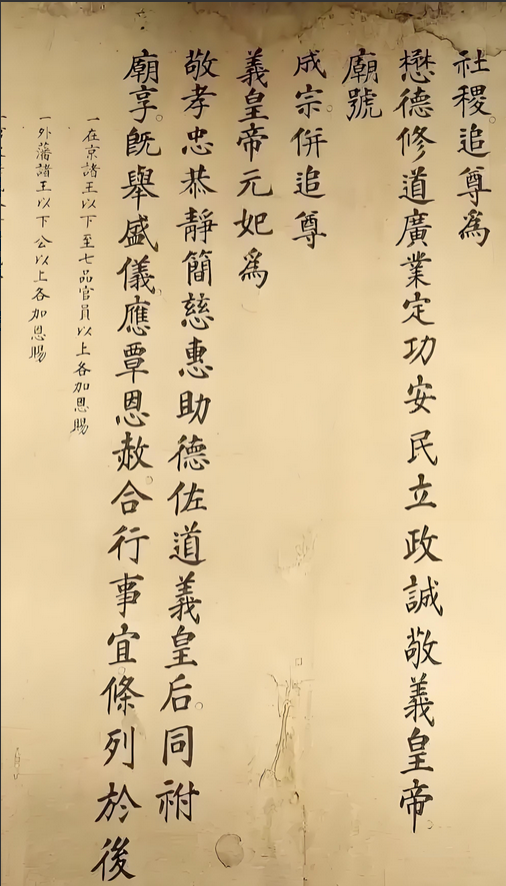 社稷。追尊為
懋德修道廣業定功安民立政誠敬義皇帝。
廟號
成宗。併追尊
義皇帝元妃為
敬孝忠恭靜簡慈惠助德佐道義皇后。同祔
廟享。旣舉盛儀。應覃恩赦。合行事宜。條列於後
一在京諸王以下至七品官員以上各加恩賜
一外藩諸王以下公以上各加恩賜